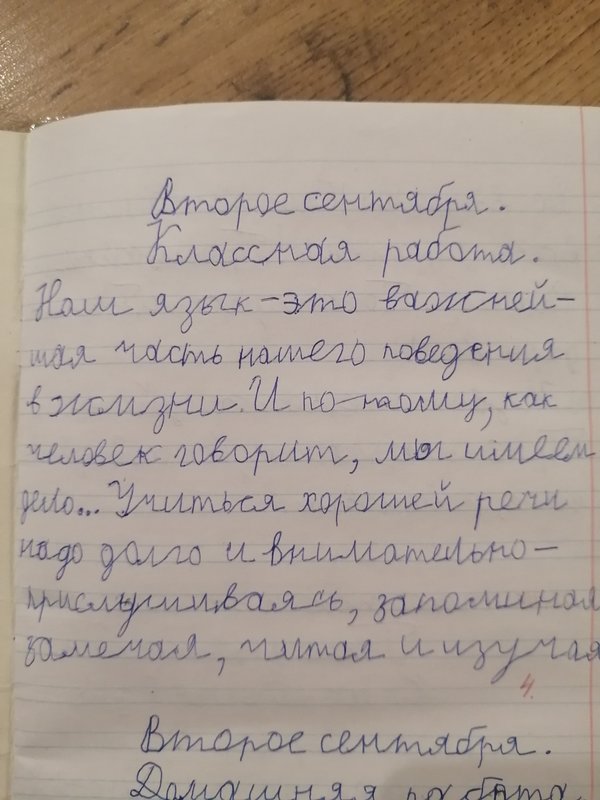 Второе сентября.
Классная работа.
Наш язык – это важней-
шая часть нашего поведения
в жизни. И по-тому, как
человек говорит, мы имеем
дело... Учиться хорошей речи
надо долго и внимательно –
прислушиваясь, запоминая
замечая, читая и изучая
4.
Второе сентября.
Домашняя работа.